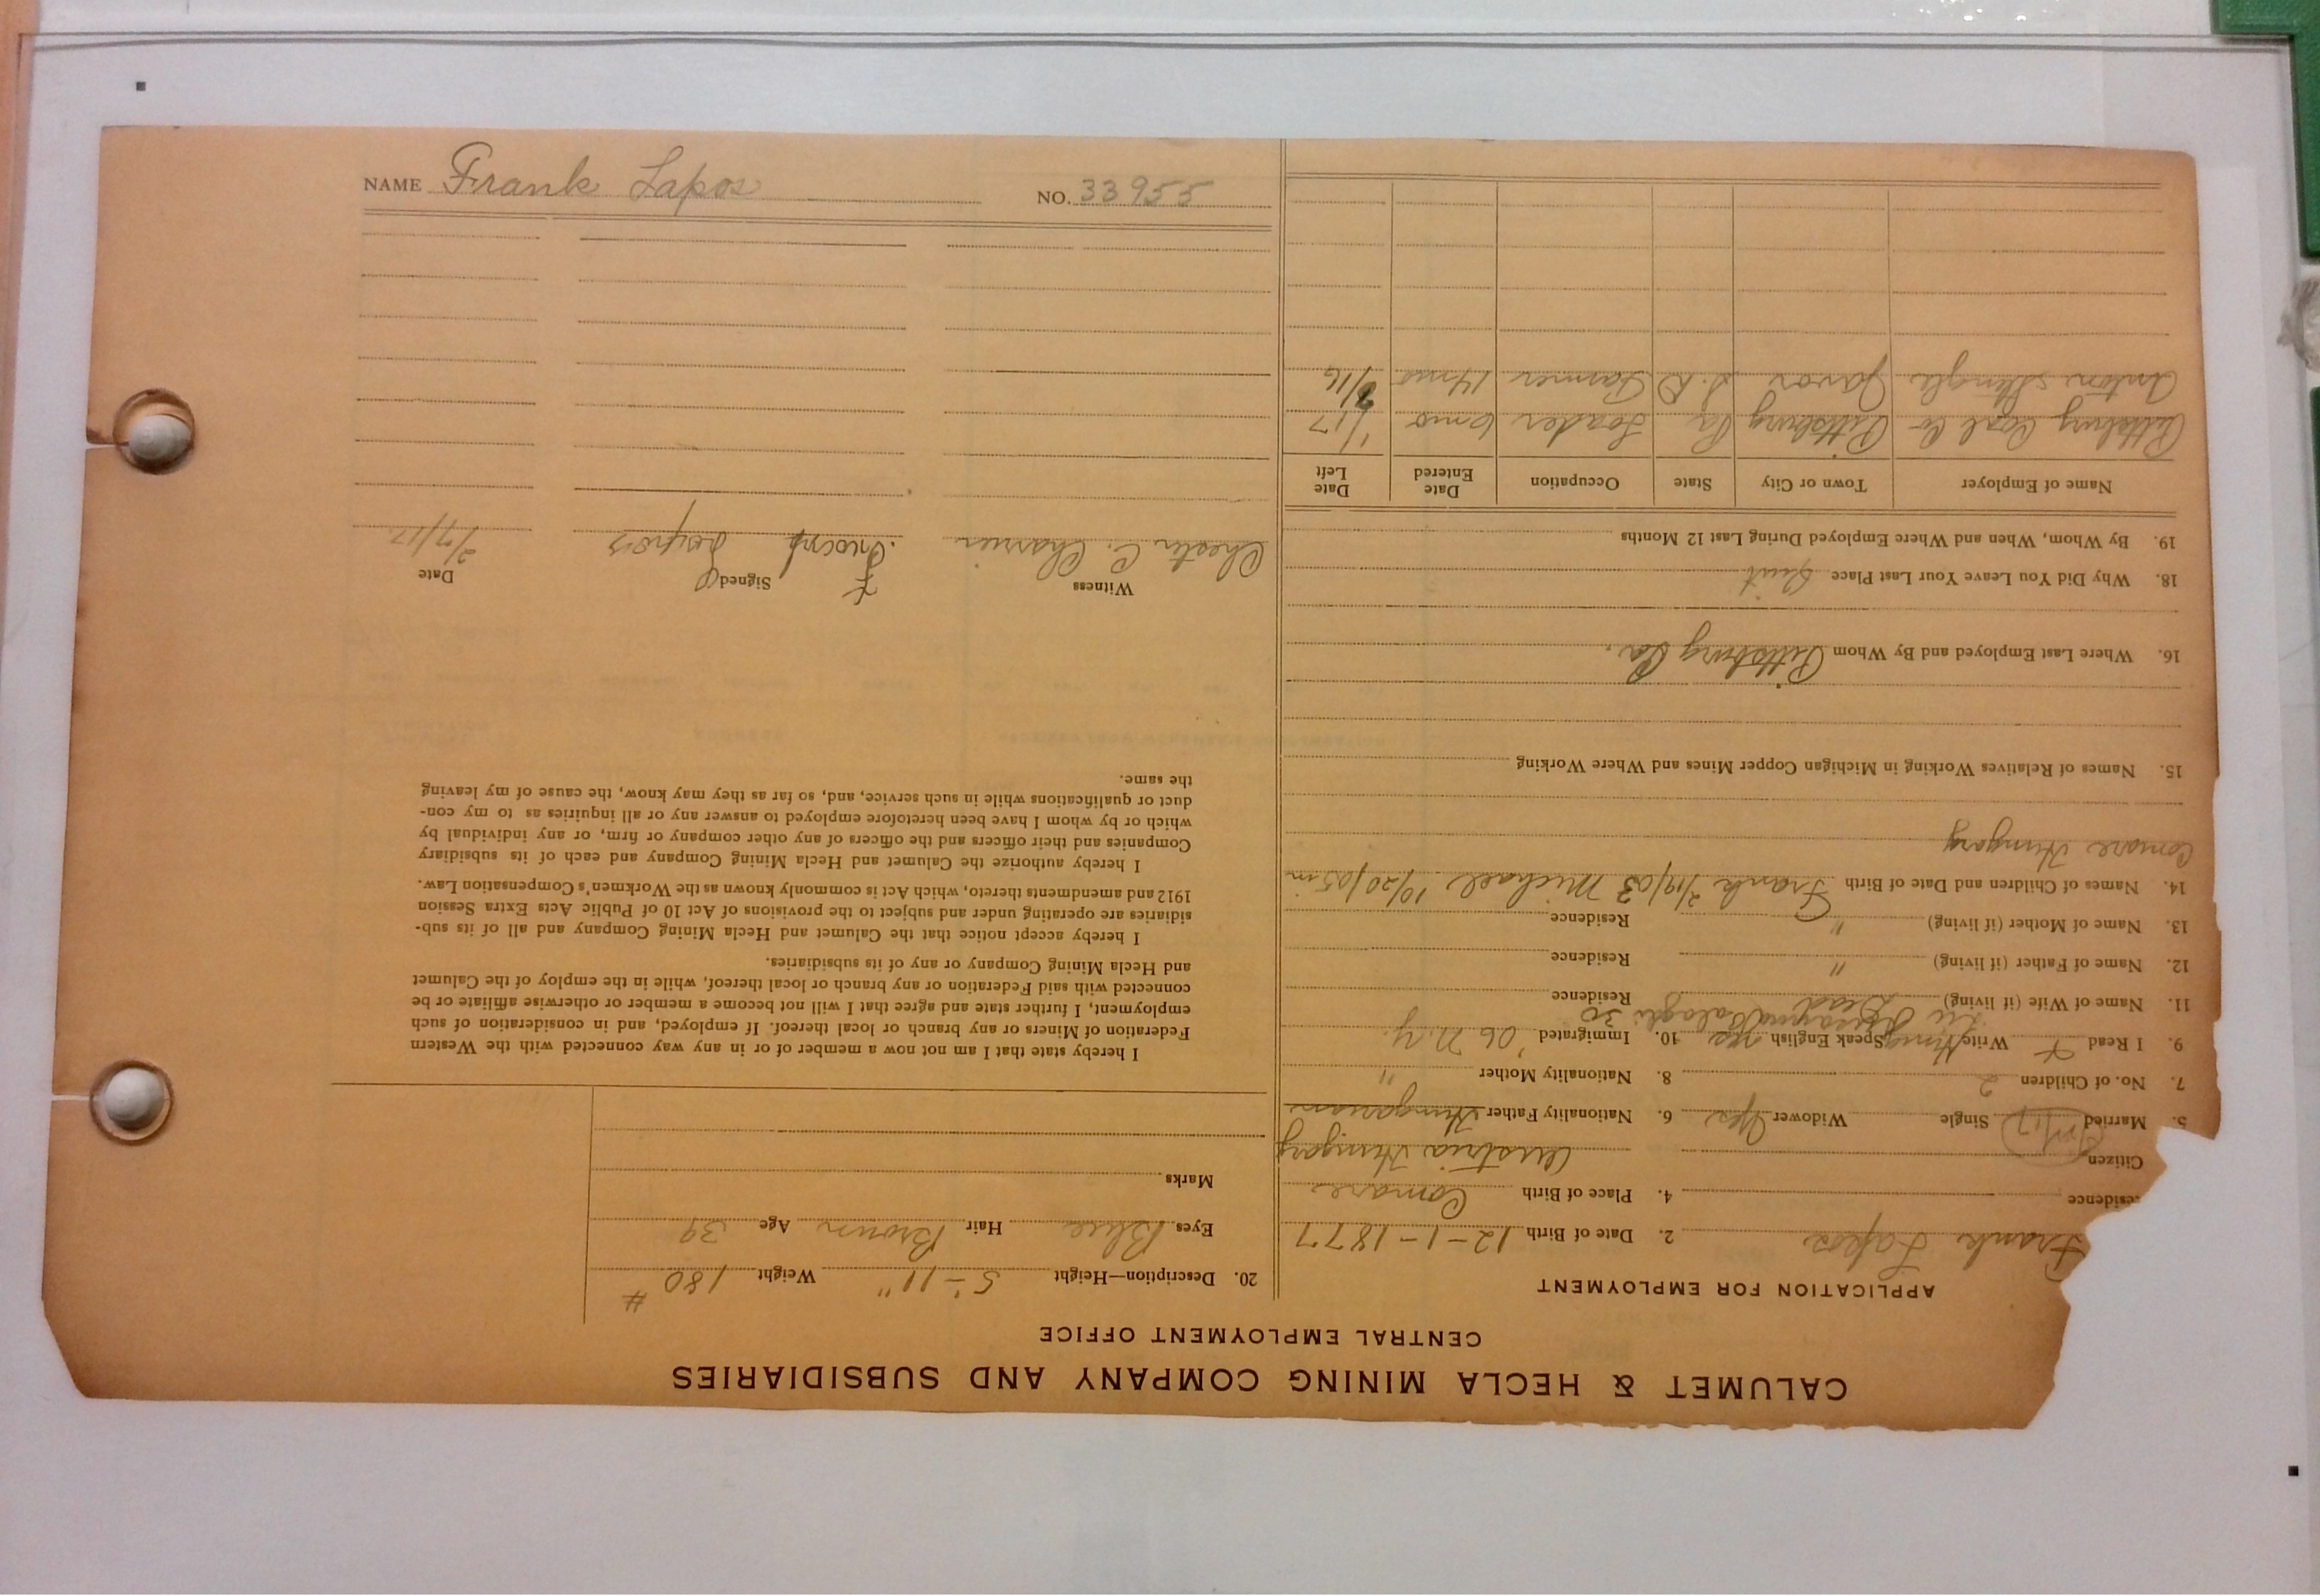 CALUMET & HECLA MINING COMPANY AND SUBSIDIARIES
CENTRAL EMPLOYMENT OFFICE
APPLICATION FOR EMPLOYMENT
Frank Lapos 2. Date of Birth 12-1-1877
esidence 4. Place of Birth Comare
Citizen Austria Hungary
5. Married Single Widower Yes 6. Nationality Father Hungarian
7. No. of Children 2 8. Nationality Mother "
9. I Read Write Hung Speak English Yes 10. Immigrated '06 N.Y.
11. Name of Wife (if living) Dead Residence
12. Name of Father (if living) " Residence
13. Name of Mother (if living) " Residence
14. Names of Children and Date of Birth Frank 2/19/03 Michael 10/20/05 in
Comare Hungary
15. Names of Relatives Working in Michigan Copper Mines and Where Working
16. Where Last Employed and By Whom Pittsburg Pa.
18. Why Did You Leave Your Last Place Quit
19. By Whom, When and Where Employed During Last 12 Months
Name of Employer Town or City State Occupation Date Entered Date Left
Pittsburg Coal Co Pittsburg Pa Loader 6 mo 1/17
Anton Stengle Javor S.D Farmer 14 mo 7/16
20. Description—Height 5-11" Weight 180 #
Eyes Blue Hair Brown Age 39
Marks
I hereby state that I am not now a member of or in any way connected with the Western
Federation of Miners or any branch or local thereof. If employed, and in consideration of such
employment, I further state and agree that I will not become a member or otherwise affiliate or be
connected with said Federation or any branch or local thereof, while in the employ of the Calumet
and Hecla Mining Company or any of its subsidiaries.
I hereby accept notice that the Calumet and Hecla Mining Company and all of its sub-
sidiaries are operating under and subject to the provisions of Act 10 of Public Acts Extra Session
1912 and amendments thereto, which Act is commonly known as the Workmen's Compensation Law.
I hereby authorize the Calumet and Hecla Mining Company and each of its subsidiary
Companies and their officers and the officers of any other company or firm, or any individual by
which or by whom I have been heretofore employed to answer any or all inquiries as to my con-
duct or qualifications while in such service, and, so far as they may know, the cause of my leaving
the same.
Witness Signed Date
Chester C. Charrier Lapos 2/7/17
NAME Frank Lapos NO. 33955